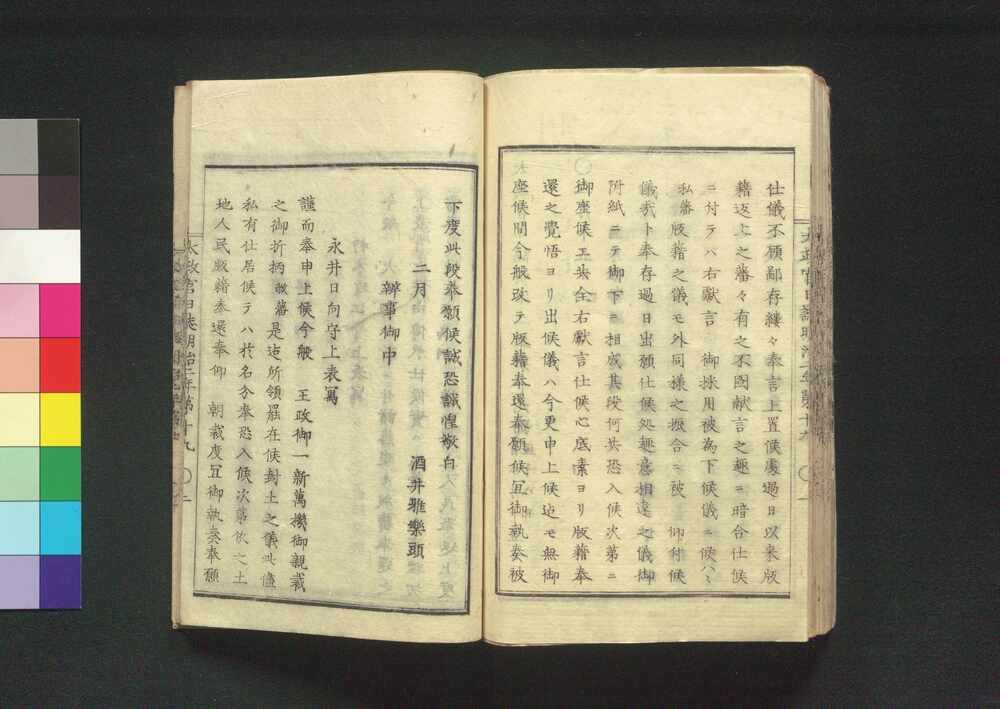 仕儀不顧鄙存縷々奉言上置候處過日以来版
籍返上之藩々有之不図献言之趣ニ暗合仕候
ニ付テハ右獻言 御採用被為下候儀ニ候ハヽ
私藩版籍之儀モ外同様之振合ニ被 仰付候
儀ト奉存過日出願仕候処趣意相違之儀御
附紙ニテ御下ニ相成其段何共恐入候次第ニ
御座候工共全右獻言仕候心底素ヨリ版籍奉
還之覺悟ヨリ出候儀ハ今更申上候迠モ無御
座候間今般改テ版籍奉還奉願候冝御執奏被
太政官日誌明治二年第十九
下度此段奉願候誠恐誠惶敬白
二月 酒井雅樂頭
辨事御中
永井日向守上表寫
謹而奉申上候今般 王政御一新萬機御親裁
之御折柄私藩是迠所領罷在候封土之儀此儘
私有仕居候テハ於名分奉恐入候次第依之土
地人民版籍奉還奉仰 朝裁度冝御執奏奉願
太政官日誌明治二年第十九 〇二